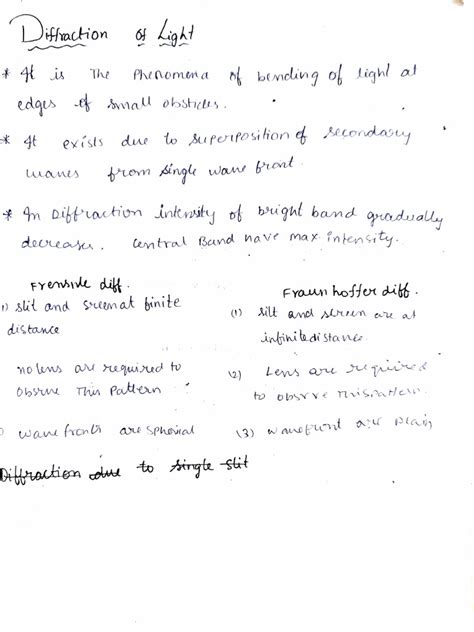 Diffraction of Light
* It is The Phenomena of bending of light at
edges of small obstcles.
* It exists due to superposition of secondary
waves from single wave front.
* In Diffraction intensity of bright band gradually
decreases. Central Band have max intensity.
Frensile diff.
1) slit and sreen at finite
distance
no lens are required to
Obsrve This Pattern
) wave fronts are spherial
Fraunhoffer diff.
(1) silt and screen are at
infinite distance
(2) Lens are required
to obsrve this pattern.
(3) wavefront are plain
Diffraction due to single slit